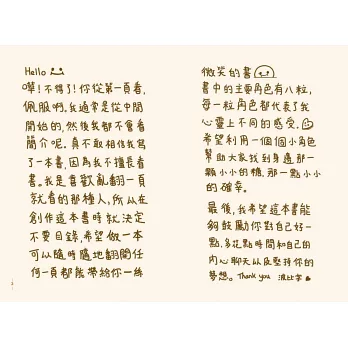 Hello
嘩！不得了！你從第一頁看，
佩服啊。我通常是從中間
開始的，然後我都不會看
簡介呢。真不敢相信我寫
了一本書，因為我不擅長看
書。我是喜歡亂翻一頁
就看的那種人，所以在
創作這本書時就決定
不要目錄，希望做一本
可以隨時隨地翻開任
何一頁都能帶給你一絲
微笑的書
書中的主要角色有八粒，
每一粒角色都代表了我
心靈上不同的感受。
希望利用一個個小角色
幫助大家找到身邊那一
顆小小的糖，那一點小小
的確幸。
最後，我希望這本書能
夠鼓勵你對自己好一
點，多花點時間和自己的
內心聊天以及堅持你的
夢想。Thank you 波比字